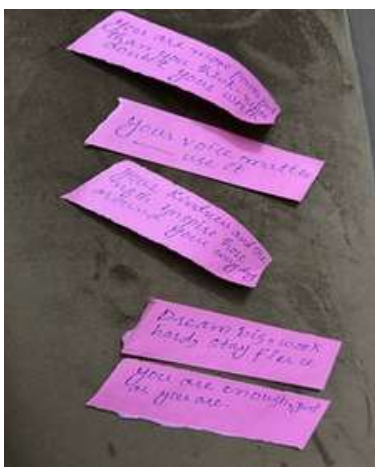 You are more powerful
than you think, don't
doubt your worth
Your voice matters
use it
Your kindness and
inspire those
around you everyday
Dream big, work
hard, stay fierce
You are enough, just
as you are.